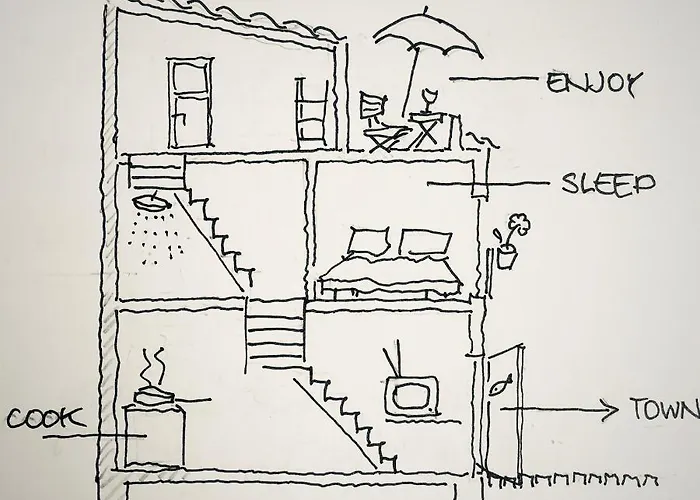 ENJOY
SLEEP
COOK
TOWN